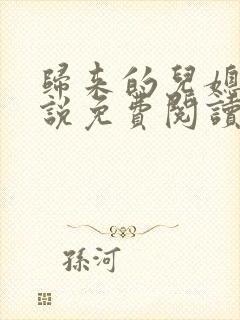 歸來的兒媳
說免費閱讀
孫河